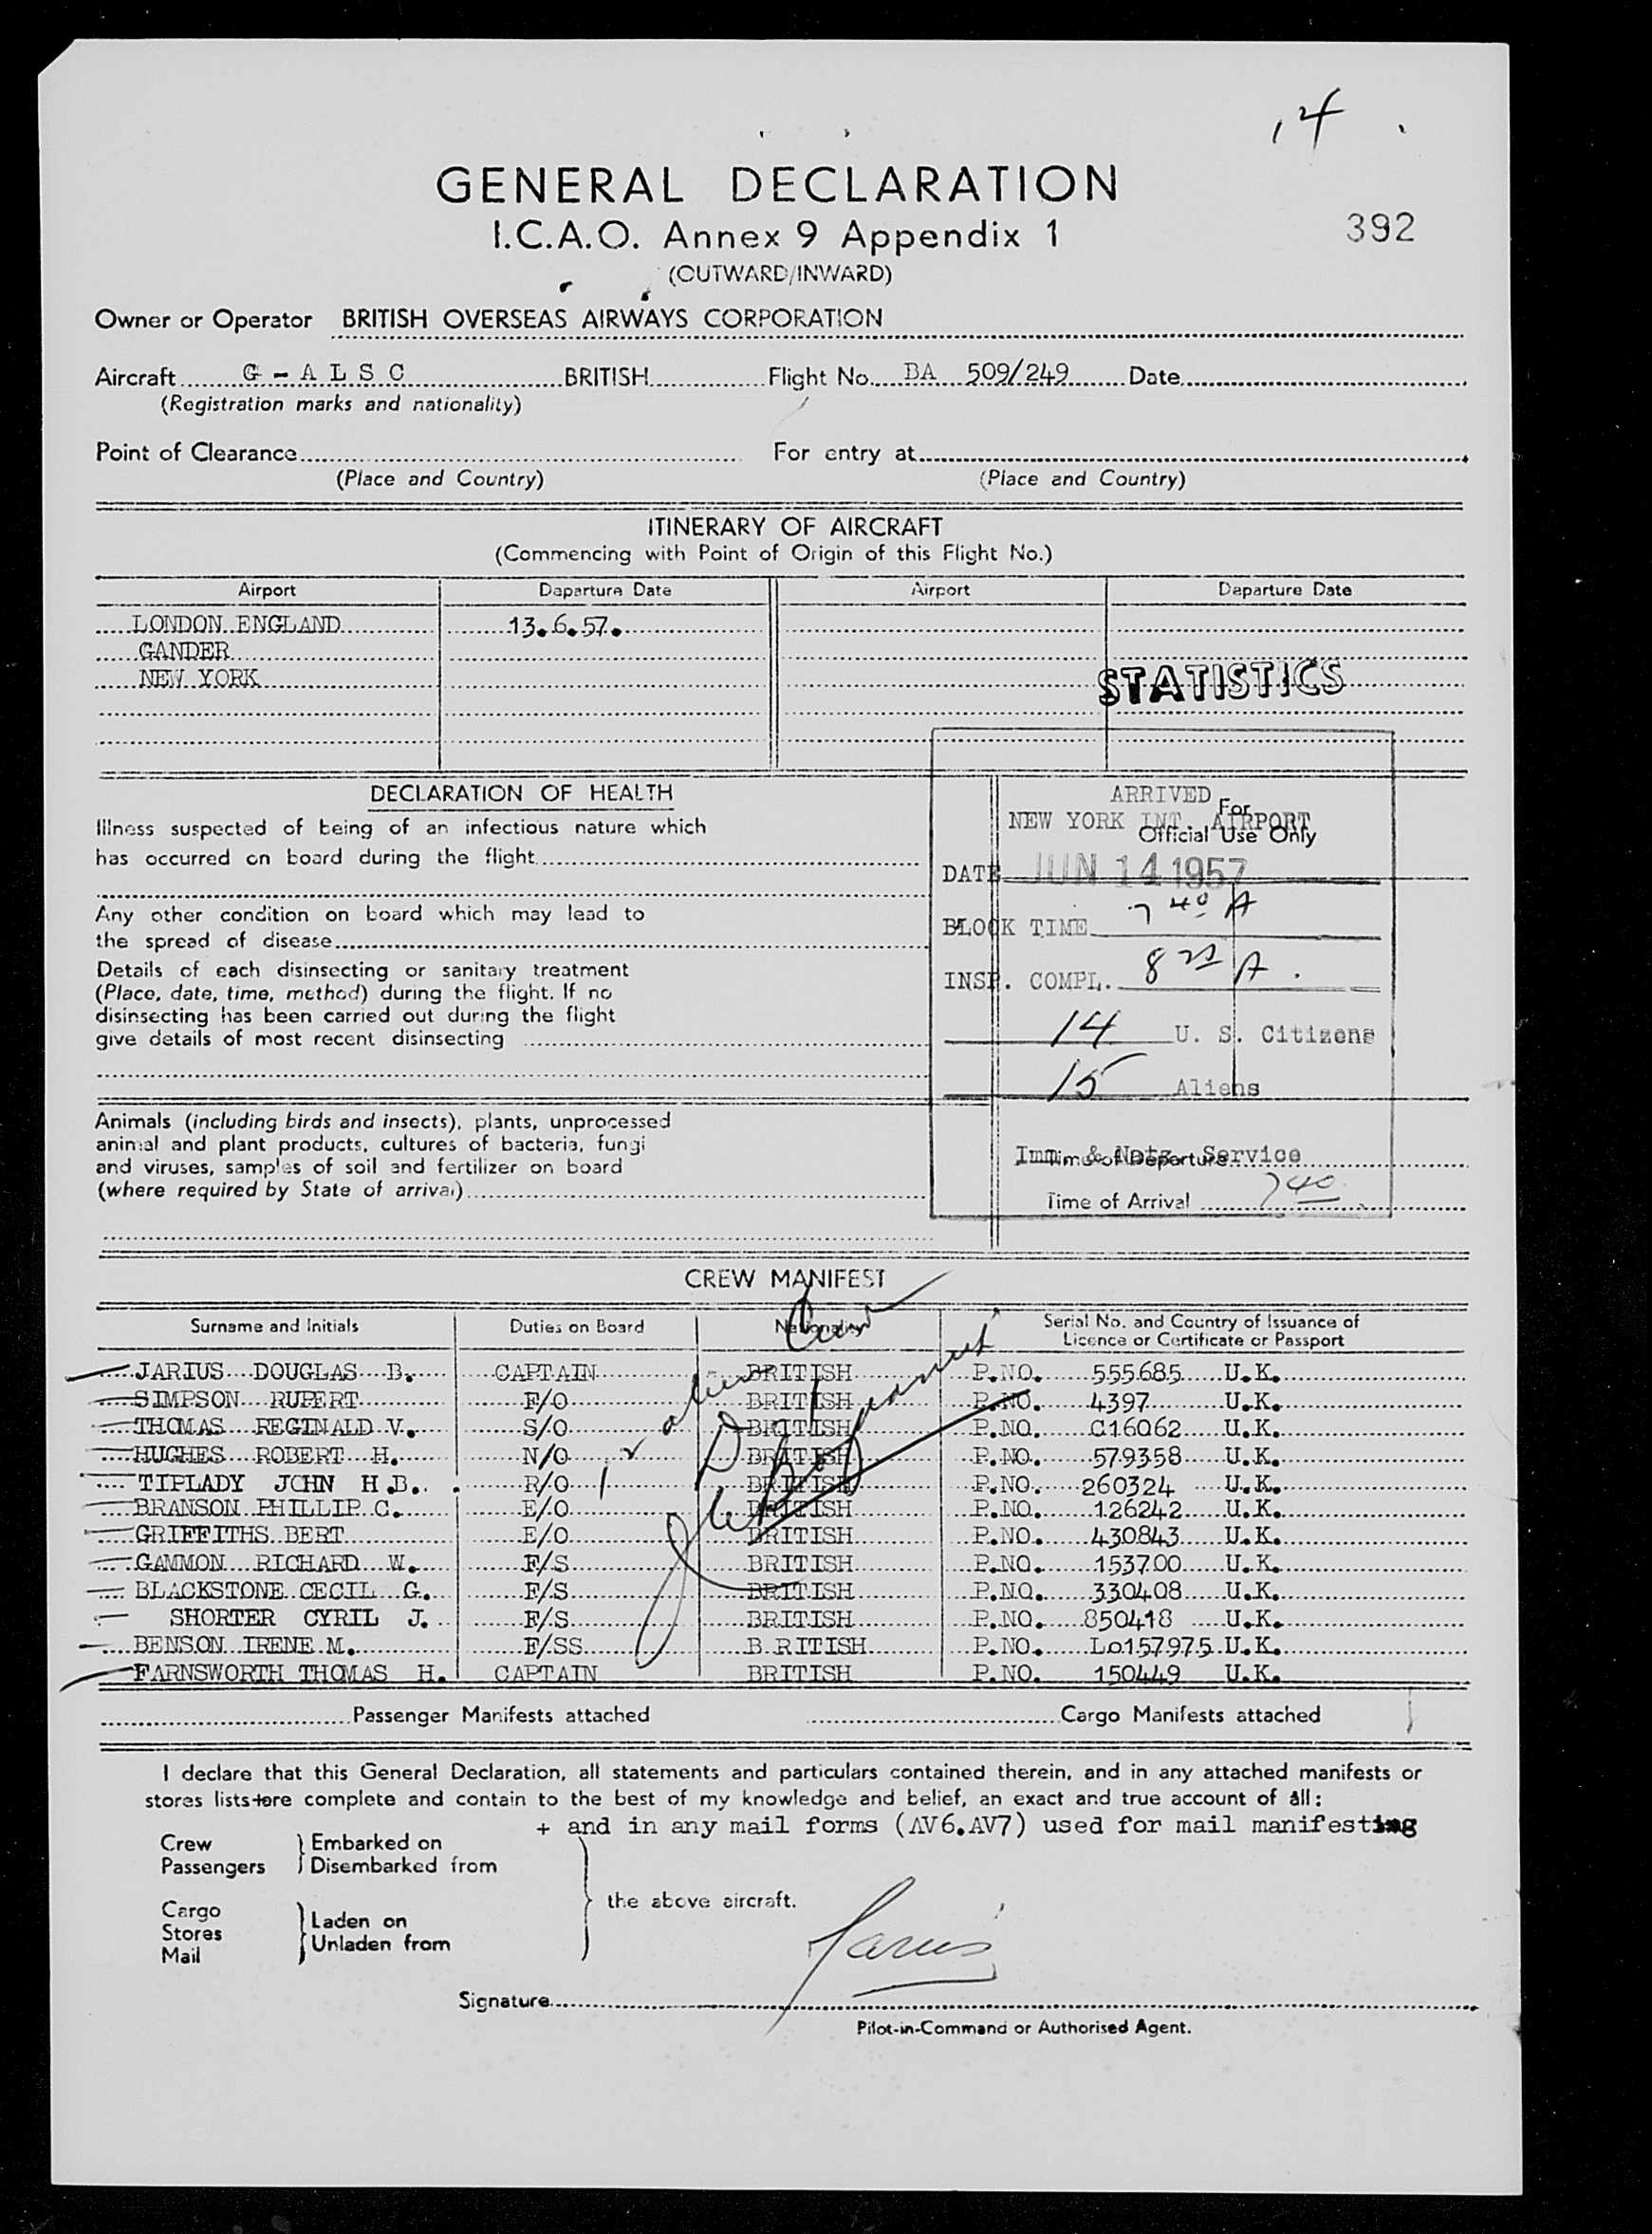 14
GENERAL DECLARATION
I.C.A.O. Annex 9 Appendix 1
392
(OUTWARD/INWARD)
Owner or Operator BRITISH OVERSEAS AIRWAYS CORPORATION
Aircraft G - A L S C BRITISH Flight No. BA 509/249 Date
(Registration marks and nationality)
Point of Clearance For entry at
(Place and Country) (Place and Country)
ITINERARY OF AIRCRAFT
(Commencing with Point of Origin of this Flight No.)
Airport Departure Date Airport Departure Date
LONDON ENGLAND 13.6.57.
GANDER
NEW YORK
STATISTICS
DECLARATION OF HEALTH
Illness suspected of being of an infectious nature which
has occurred on board during the flight
Any other condition on board which may lead to
the spread of disease
Details of each disinsecting or sanitary treatment
(Place, date, time, method) during the flight. If no
disinsecting has been carried out during the flight
give details of most recent disinsecting
Animals (including birds and insects), plants, unprocessed
animal and plant products, cultures of bacteria, fungi
and viruses, samples of soil and fertilizer on board
(where required by State of arrival)
ARRIVED
For
NEW YORK INT. AIRPORT
Official Use Only
DATE JUN 14 1957
BLOCK TIME 7 40 A
INSP. COMPL. 8 A.
14 U. S. Citizens
15 Aliens
Imm. & Natz. Service
Time of Departure
Time of Arrival 7 40
CREW MANIFEST
Surname and Initials Duties on Board Nationality Serial No. and Country of Issuance of
Licence or Certificate or Passport
JARIUS DOUGLAS B. CAPTAIN BRITISH P.NO. 555685 U.K.
SIMPSON RUPERT F/O BRITISH P.NO. 4397 U.K.
THOMAS REGINALD V. S/O BRITISH P.NO. C16062 U.K.
HUGHES ROBERT H. N/O BRITISH P.NO. 579358 U.K.
TIPLADY JOHN H.B. R/O BRITISH P.NO. 260324 U.K.
BRANSON PHILLIP C. E/O BRITISH P.NO. 126242 U.K.
GRIFFITHS BERT E/O BRITISH P.NO. 430843 U.K.
GAMMON RICHARD W. F/S BRITISH P.NO. 153700 U.K.
BLACKSTONE CECIL G. F/S BRITISH P.NO. 330408 U.K.
SHORTER CYRIL J. F/S BRITISH P.NO. 850418 U.K.
BENSON IRENE M. F/SS B RITISH P.NO. Lo157975 U.K.
FARNSWORTH THOMAS H. CAPTAIN BRITISH P.NO. 150449 U.K.
Passenger Manifests attached Cargo Manifests attached
I declare that this General Declaration, all statements and particulars contained therein, and in any attached manifests or
stores lists+are complete and contain to the best of my knowledge and belief, an exact and true account of all:
+ and in any mail forms (AV6.AV7) used for mail manifesting
Crew Embarked on
Passengers Disembarked from
the above aircraft.
Cargo
Stores Laden on
Mail Unladen from
Jarius
Signature
Pilot-in-Command or Authorised Agent.